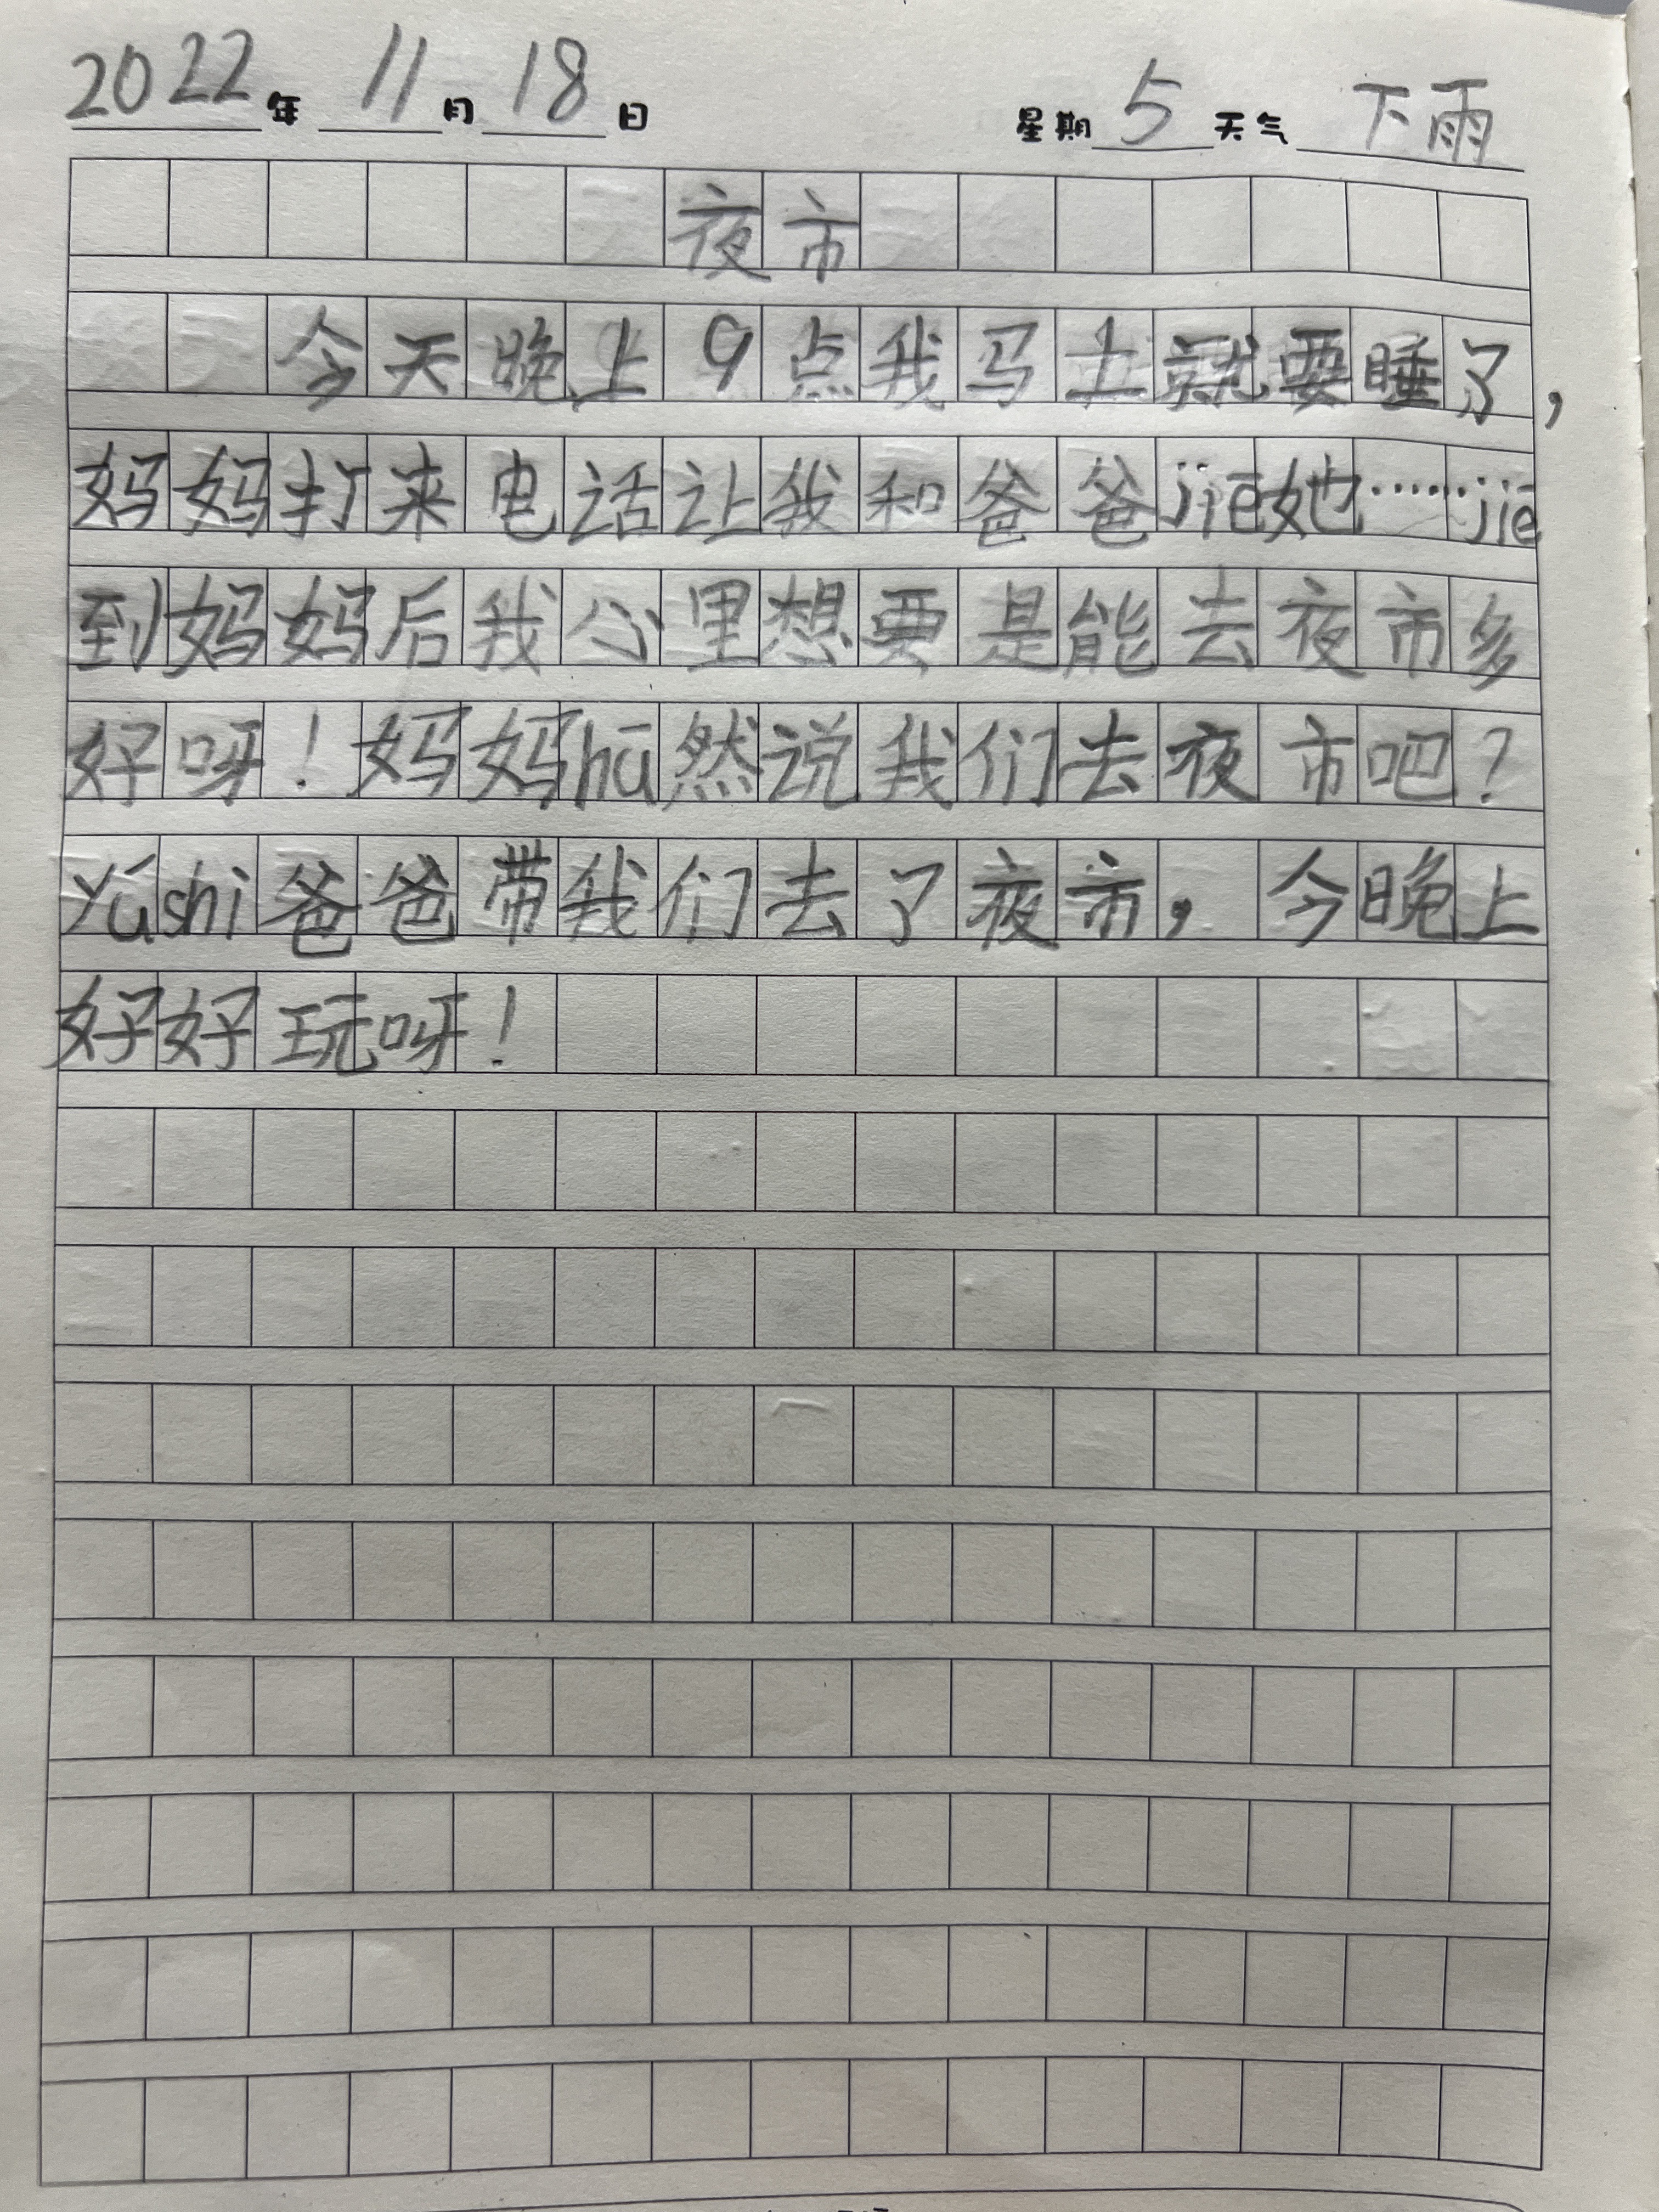 2022年 11月 18日 星期5 天气 下雨
夜市
今天晚上9点我马上就要睡了,
妈妈打来电话让我和爸爸jiē她……jiē
到妈妈后我心里想要是能去夜市多
好呀！妈妈hū然说我们去夜市吧？
yúshì爸爸带我们去了夜市，今晚上
好好玩呀！